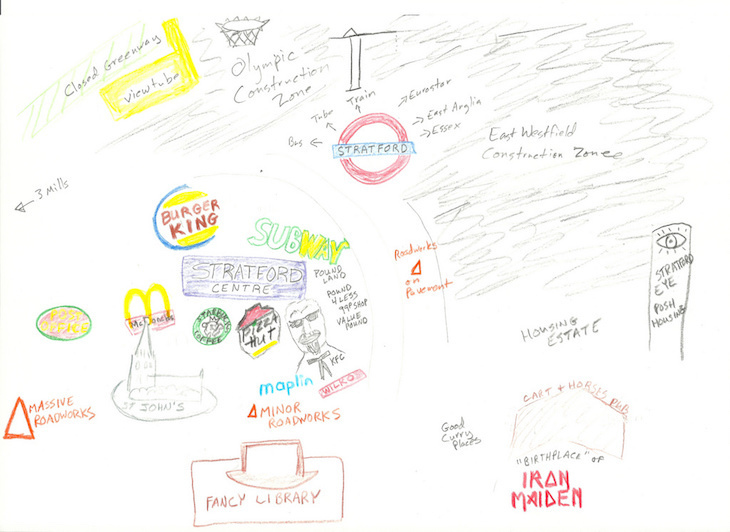 Closed Greenway
viewtube
Olympic
Construction
Zone
Train
Tube
Bus
Eurostar
East Anglia
Essex
STRATFORD
East Westfield
Construction Zone
3 Mills
BURGER
KING
SUBWAY
STRATFORD
CENTRE
POUND
LAND
POUND
4 LESS
99P SHOP
VALUE
POUND
Roadworks
on
Pavement
STRATFORD
EYE
POSH
HOUSING
HOUSING
ESTATE
POST
OFFICE
McDonalds
STARBUCKS
COFFEE
PIZZA
HUT
KFC
maplin
WILKOS
ST JOHN'S
MASSIVE
ROADWORKS
MINOR
ROADWORKS
FANCY LIBRARY
CART & HORSES PUB
Good
Curry
Places
"BIRTHPLACE" OF
IRON
MAIDEN